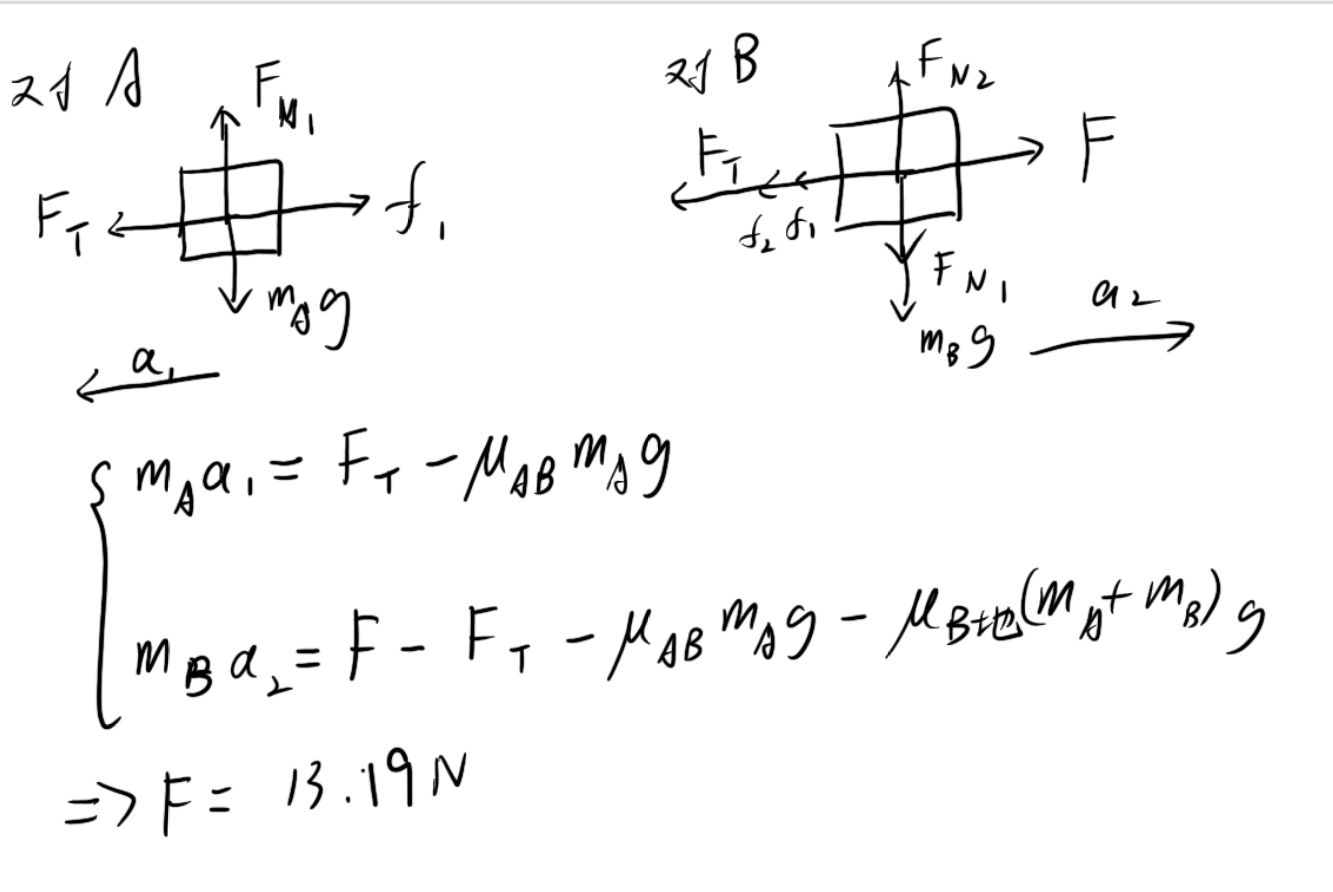 对 A
F_N1
F_T
f_1
m_A g
a_1
对 B
F_N2
F_T
F
f_2 f_1
F_N1
m_B g
a_2
m_A a_1 = F_T - μ_AB m_A g
m_B a_2 = F - F_T - μ_AB m_A g - μ_B地 (m_A + m_B) g
=> F = 13.19 N